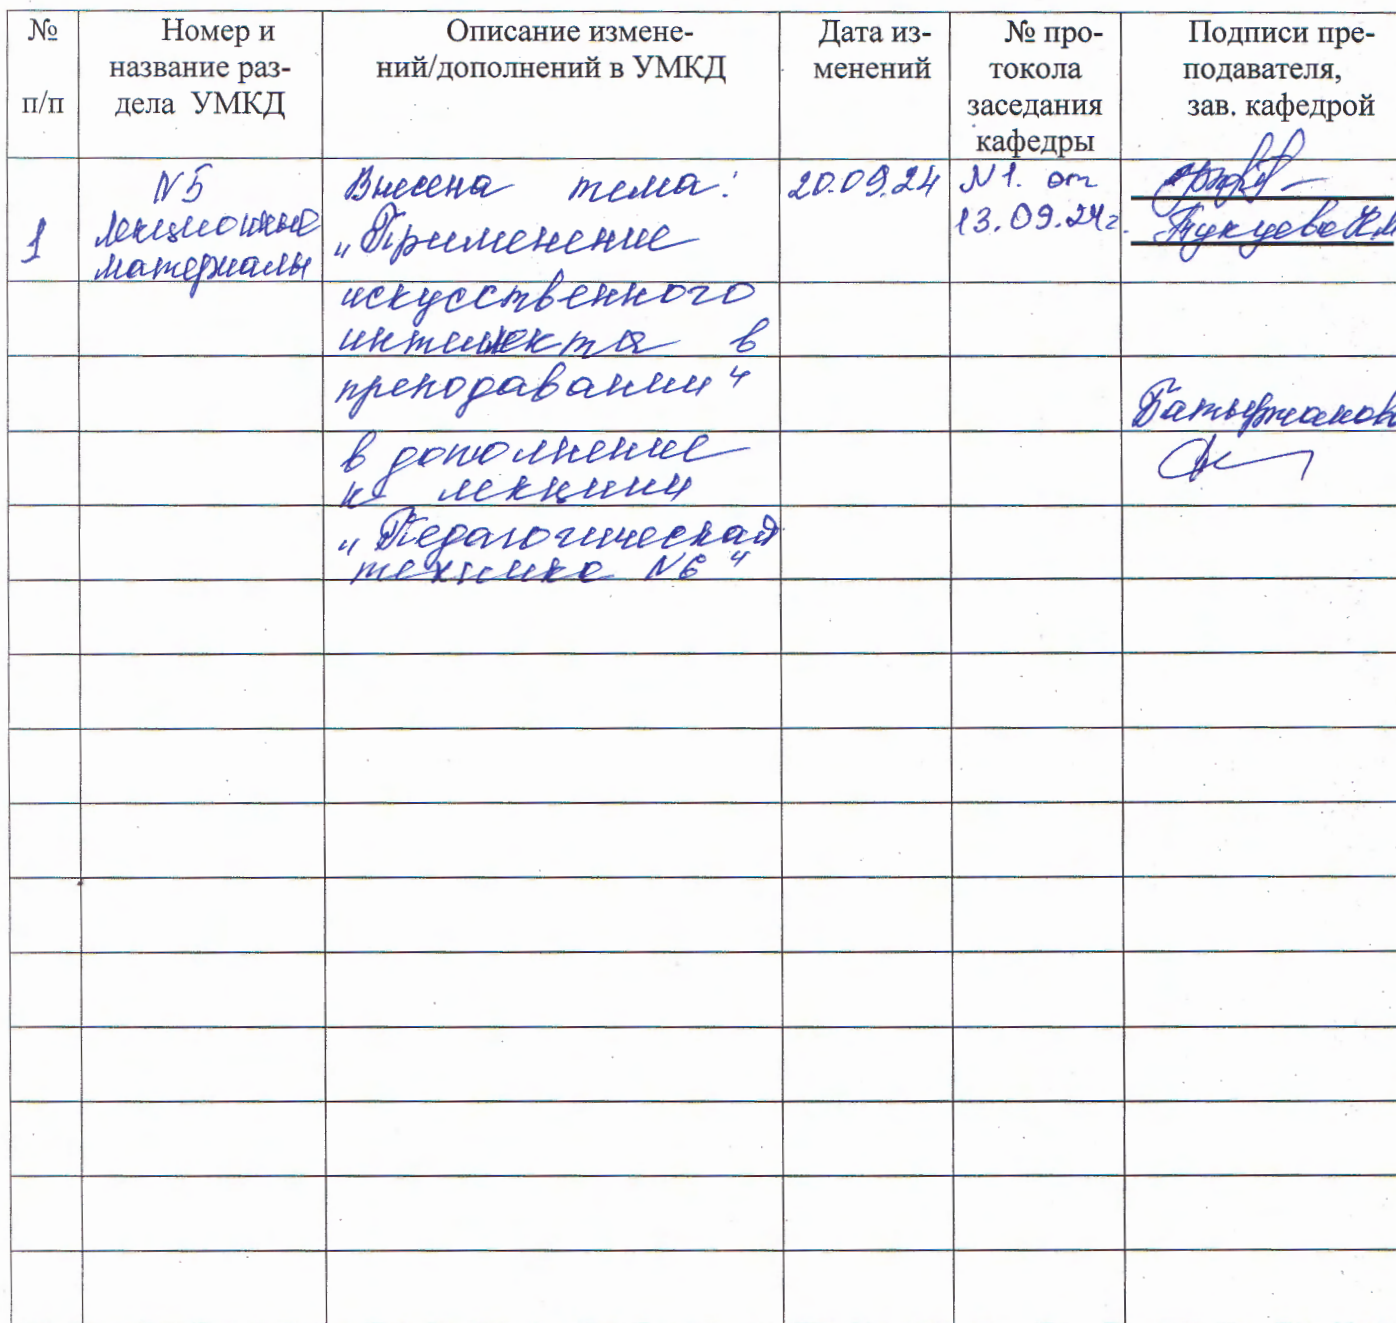 № п/п
Номер и название раз-
дела УМКД
Описание измене-
ний/дополнений в УМКД
Дата из-
менений
№ про-
токола
заседания
кафедры
Подписи пре-
подавателя,
зав. кафедрой
1
N5
Лекционные
материалы
Внесена тема:
„Применение
искусственного
интеллекта в
преподавании“
в дополнение
к лекции
„Педагогическая
техника N6“
20.09.24
N1. от
13.09.24г.